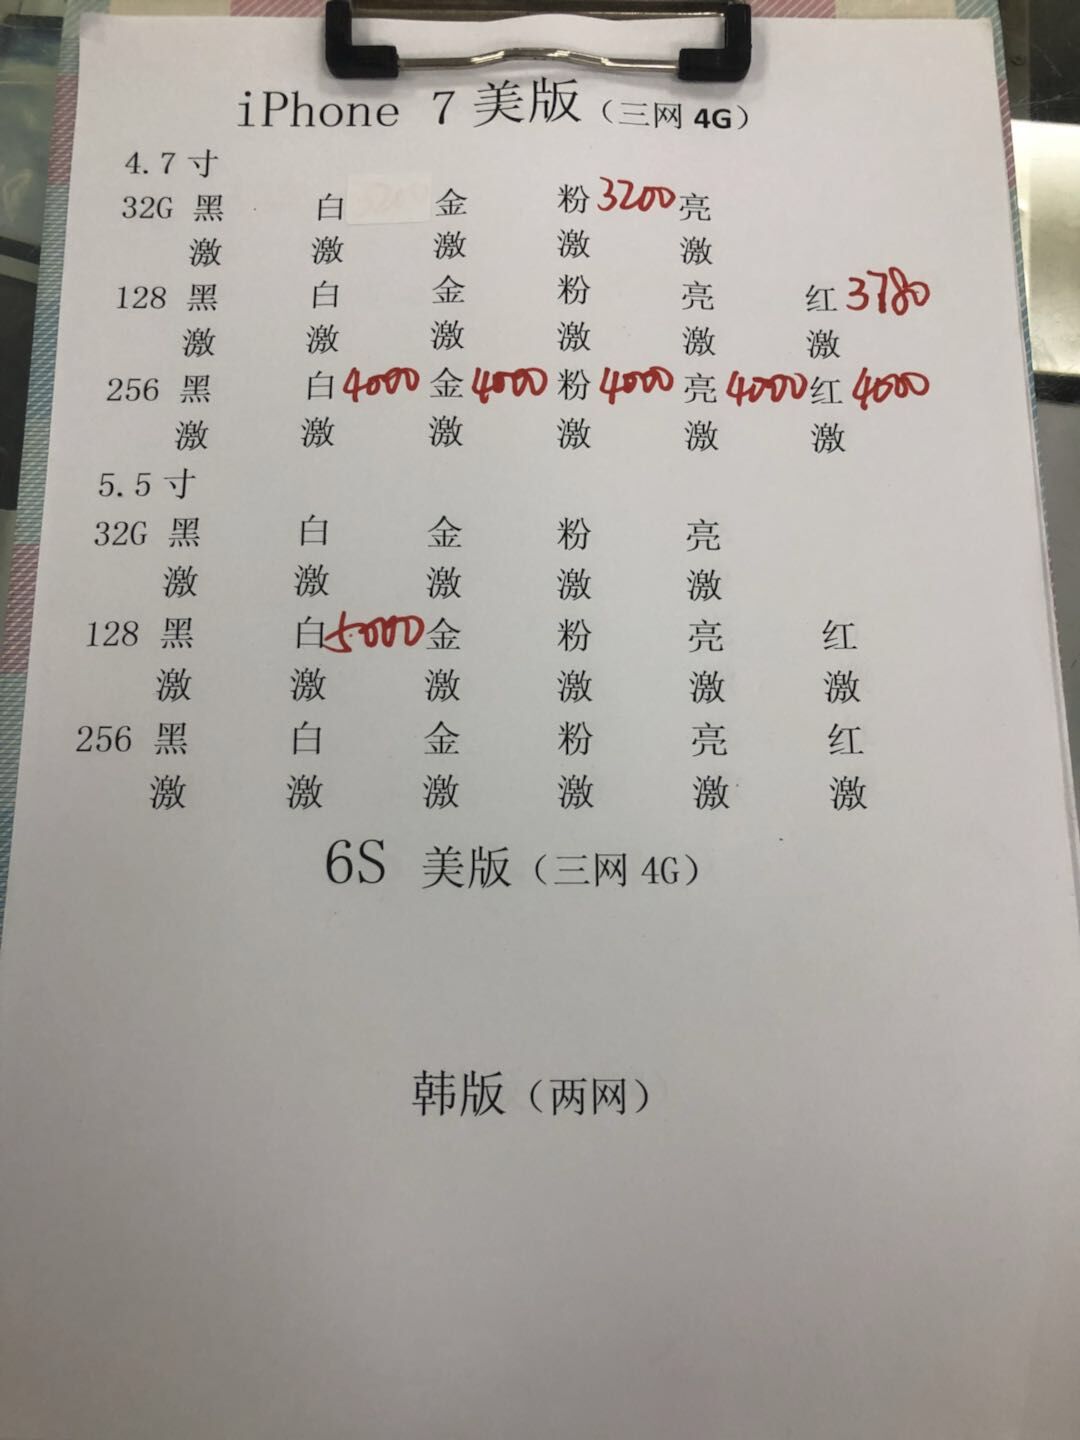 iPhone 7 美版（三网 4G）
4.7 寸
32G 黑 白 金 粉 3200 亮
激 激 激 激 激
128 黑 白 金 粉 亮 红 3780
激 激 激 激 激 激
256 黑 白 4000 金 4000 粉 4000 亮 4000 红 4000
激 激 激 激 激 激
5.5 寸
32G 黑 白 金 粉 亮
激 激 激 激 激
128 黑 白 5000 金 粉 亮 红
激 激 激 激 激 激
256 黑 白 金 粉 亮 红
激 激 激 激 激 激
6S 美版（三网 4G）
韩版（两网）